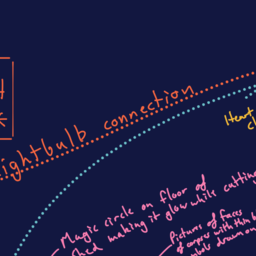 ightbulb connection
Heart
Magic circle on floor of
shed making it glow while cutting
Pictures of Faces
of corpses with thin
drawn on